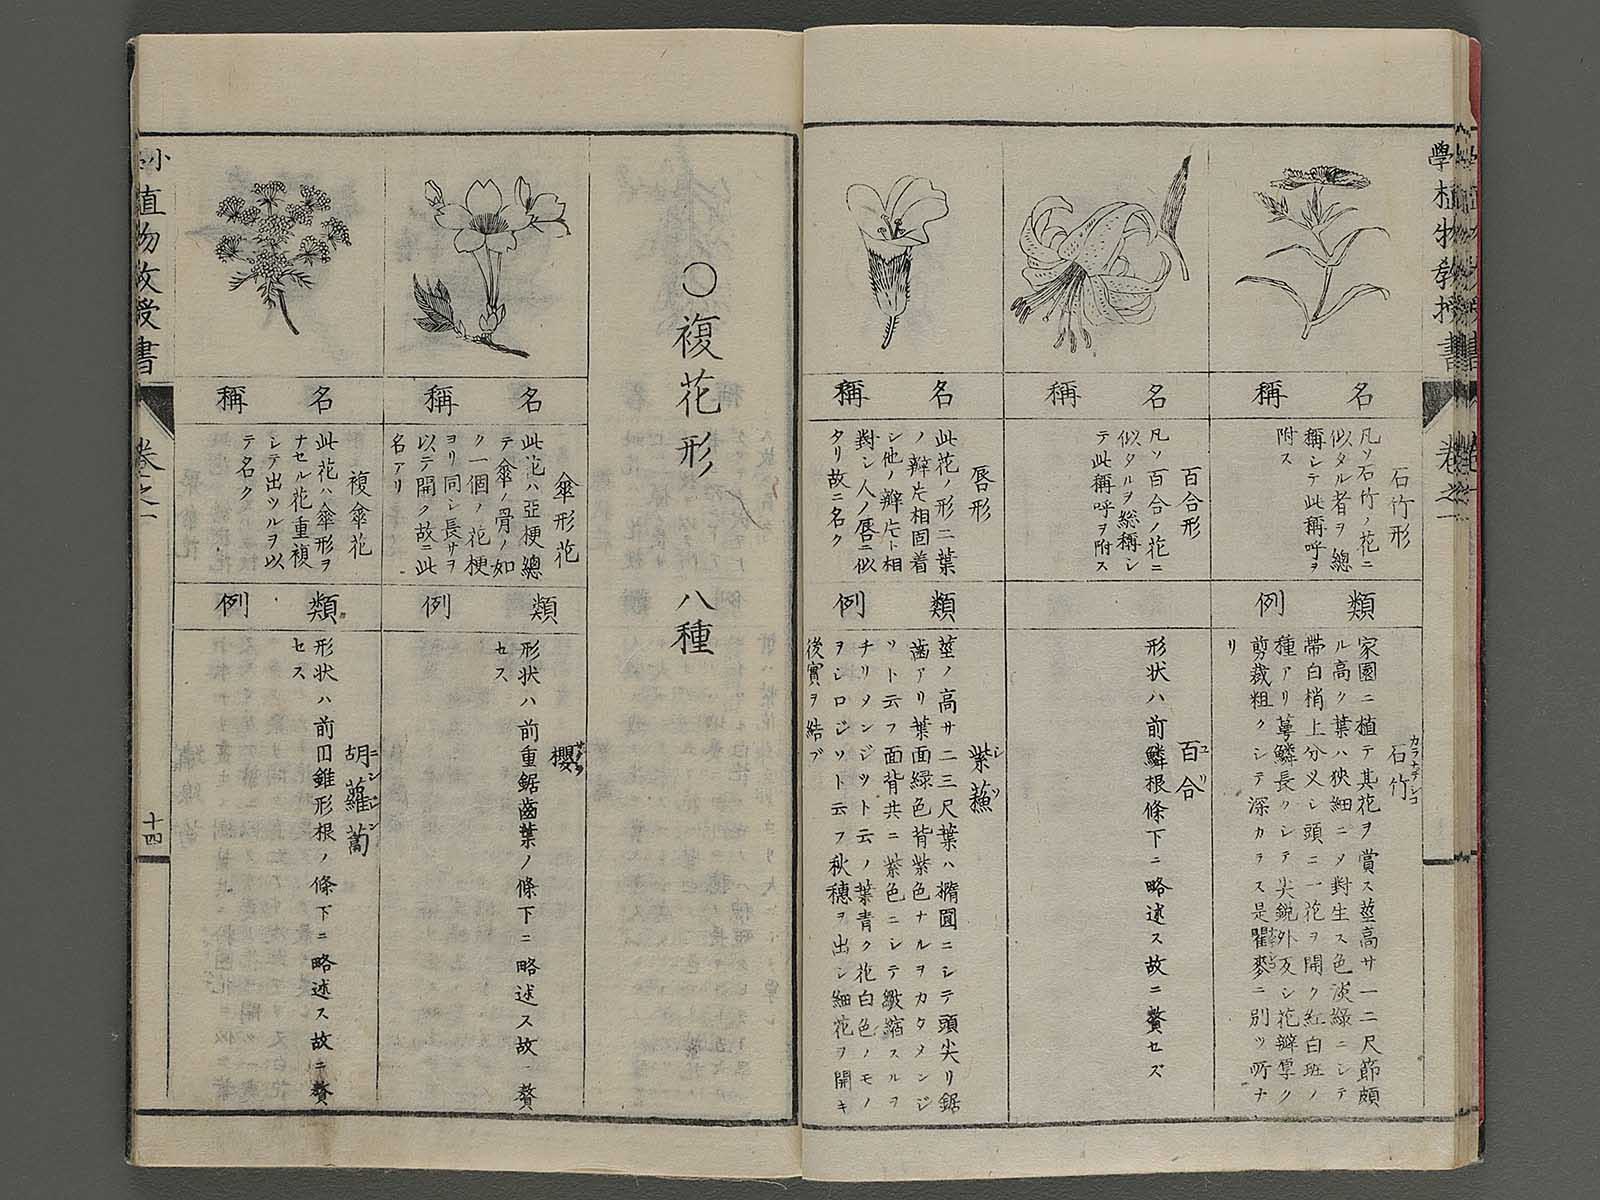 學植物教授書
卷之一
名稱
石竹形
凡ソ石竹ノ花ニ
似タル者ヲ總
稱シテ此稱呼ヲ
附ス
類例
石竹
カラナデシコ
家園ニ植テ其花ヲ賞ス莖高サ一二尺節頗
ル高ク葉ハ狹細ニメ對生ス色淡綠ニシテ
帶白梢上分义シ頭ニ一花ヲ開ク紅白斑ノ
種アリ萼鱗長クシテ尖銳外反シ花瓣厚ク
剪裁粗クシテ深カラス是瞿麥ニ別ツ所ナ
リ
名稱
百合形
凡ソ百合ノ花ニ
似タルヲ総稱シ
テ此稱呼ヲ附ス
類例
百合
ユリ
形状ハ前鱗根條下ニ略述ス故ニ贅セズ
名稱
唇形
此花ノ形二葉
ノ瓣片相固着
シ他ノ瓣片ト相
對シ人ノ唇ニ似
タリ故ニ名ク
類例
紫蘇
シソ
莖ノ高サ二三尺葉ハ橢圓ニシテ頭尖リ鋸
齒アリ葉面綠色背紫色ナルヲカタメンジ
ソト云フ面背共ニ紫色ニシテ皺縮スルヲ
チリメンジソト云ノ葉青ク花白色ノモノ
ヲシロジソト云フ秋穗ヲ出シ細花ヲ開キ
後實ヲ結ブ
○複花形ノ八種
名稱
傘形花
此花ハ亞梗總
テ傘ノ骨ノ如
ク一個ノ花梗
ヨリ同シ長サヲ
以テ開ク故ニ此
名アリ
類例
櫻
サクラ
形状ハ前重鋸齒葉ノ條下ニ略述ス故ニ贅
セス
名稱
複傘花
此花ハ傘形ヲ
ナセル花重複
シテ出ツルヲ以
テ名ク
類例
胡蘿蔔
ニンジン
形状ハ前圓錐形根ノ條下ニ略述ス故ニ贅
セス
小植物教授書
卷之一
十四